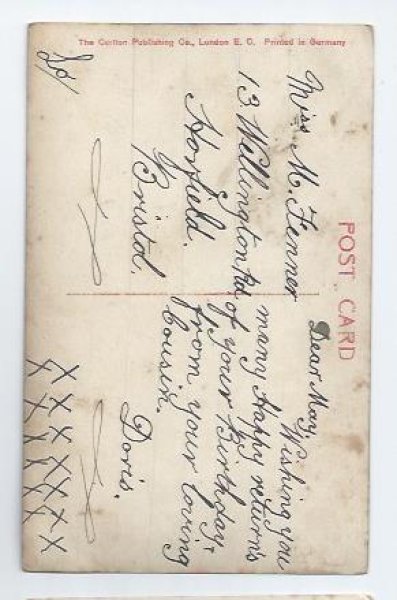 The Carlton Publishing Co., London E. C. Printed in Germany
POST CARD
Dear May,
Wishing you
many Happy returns
of your Birthday,
from your loving
cousin.
Doris.
X X X X X X
X X X X X X
Miss M. Fenner
13 Wellington Rd
Horfield.
Bristol.